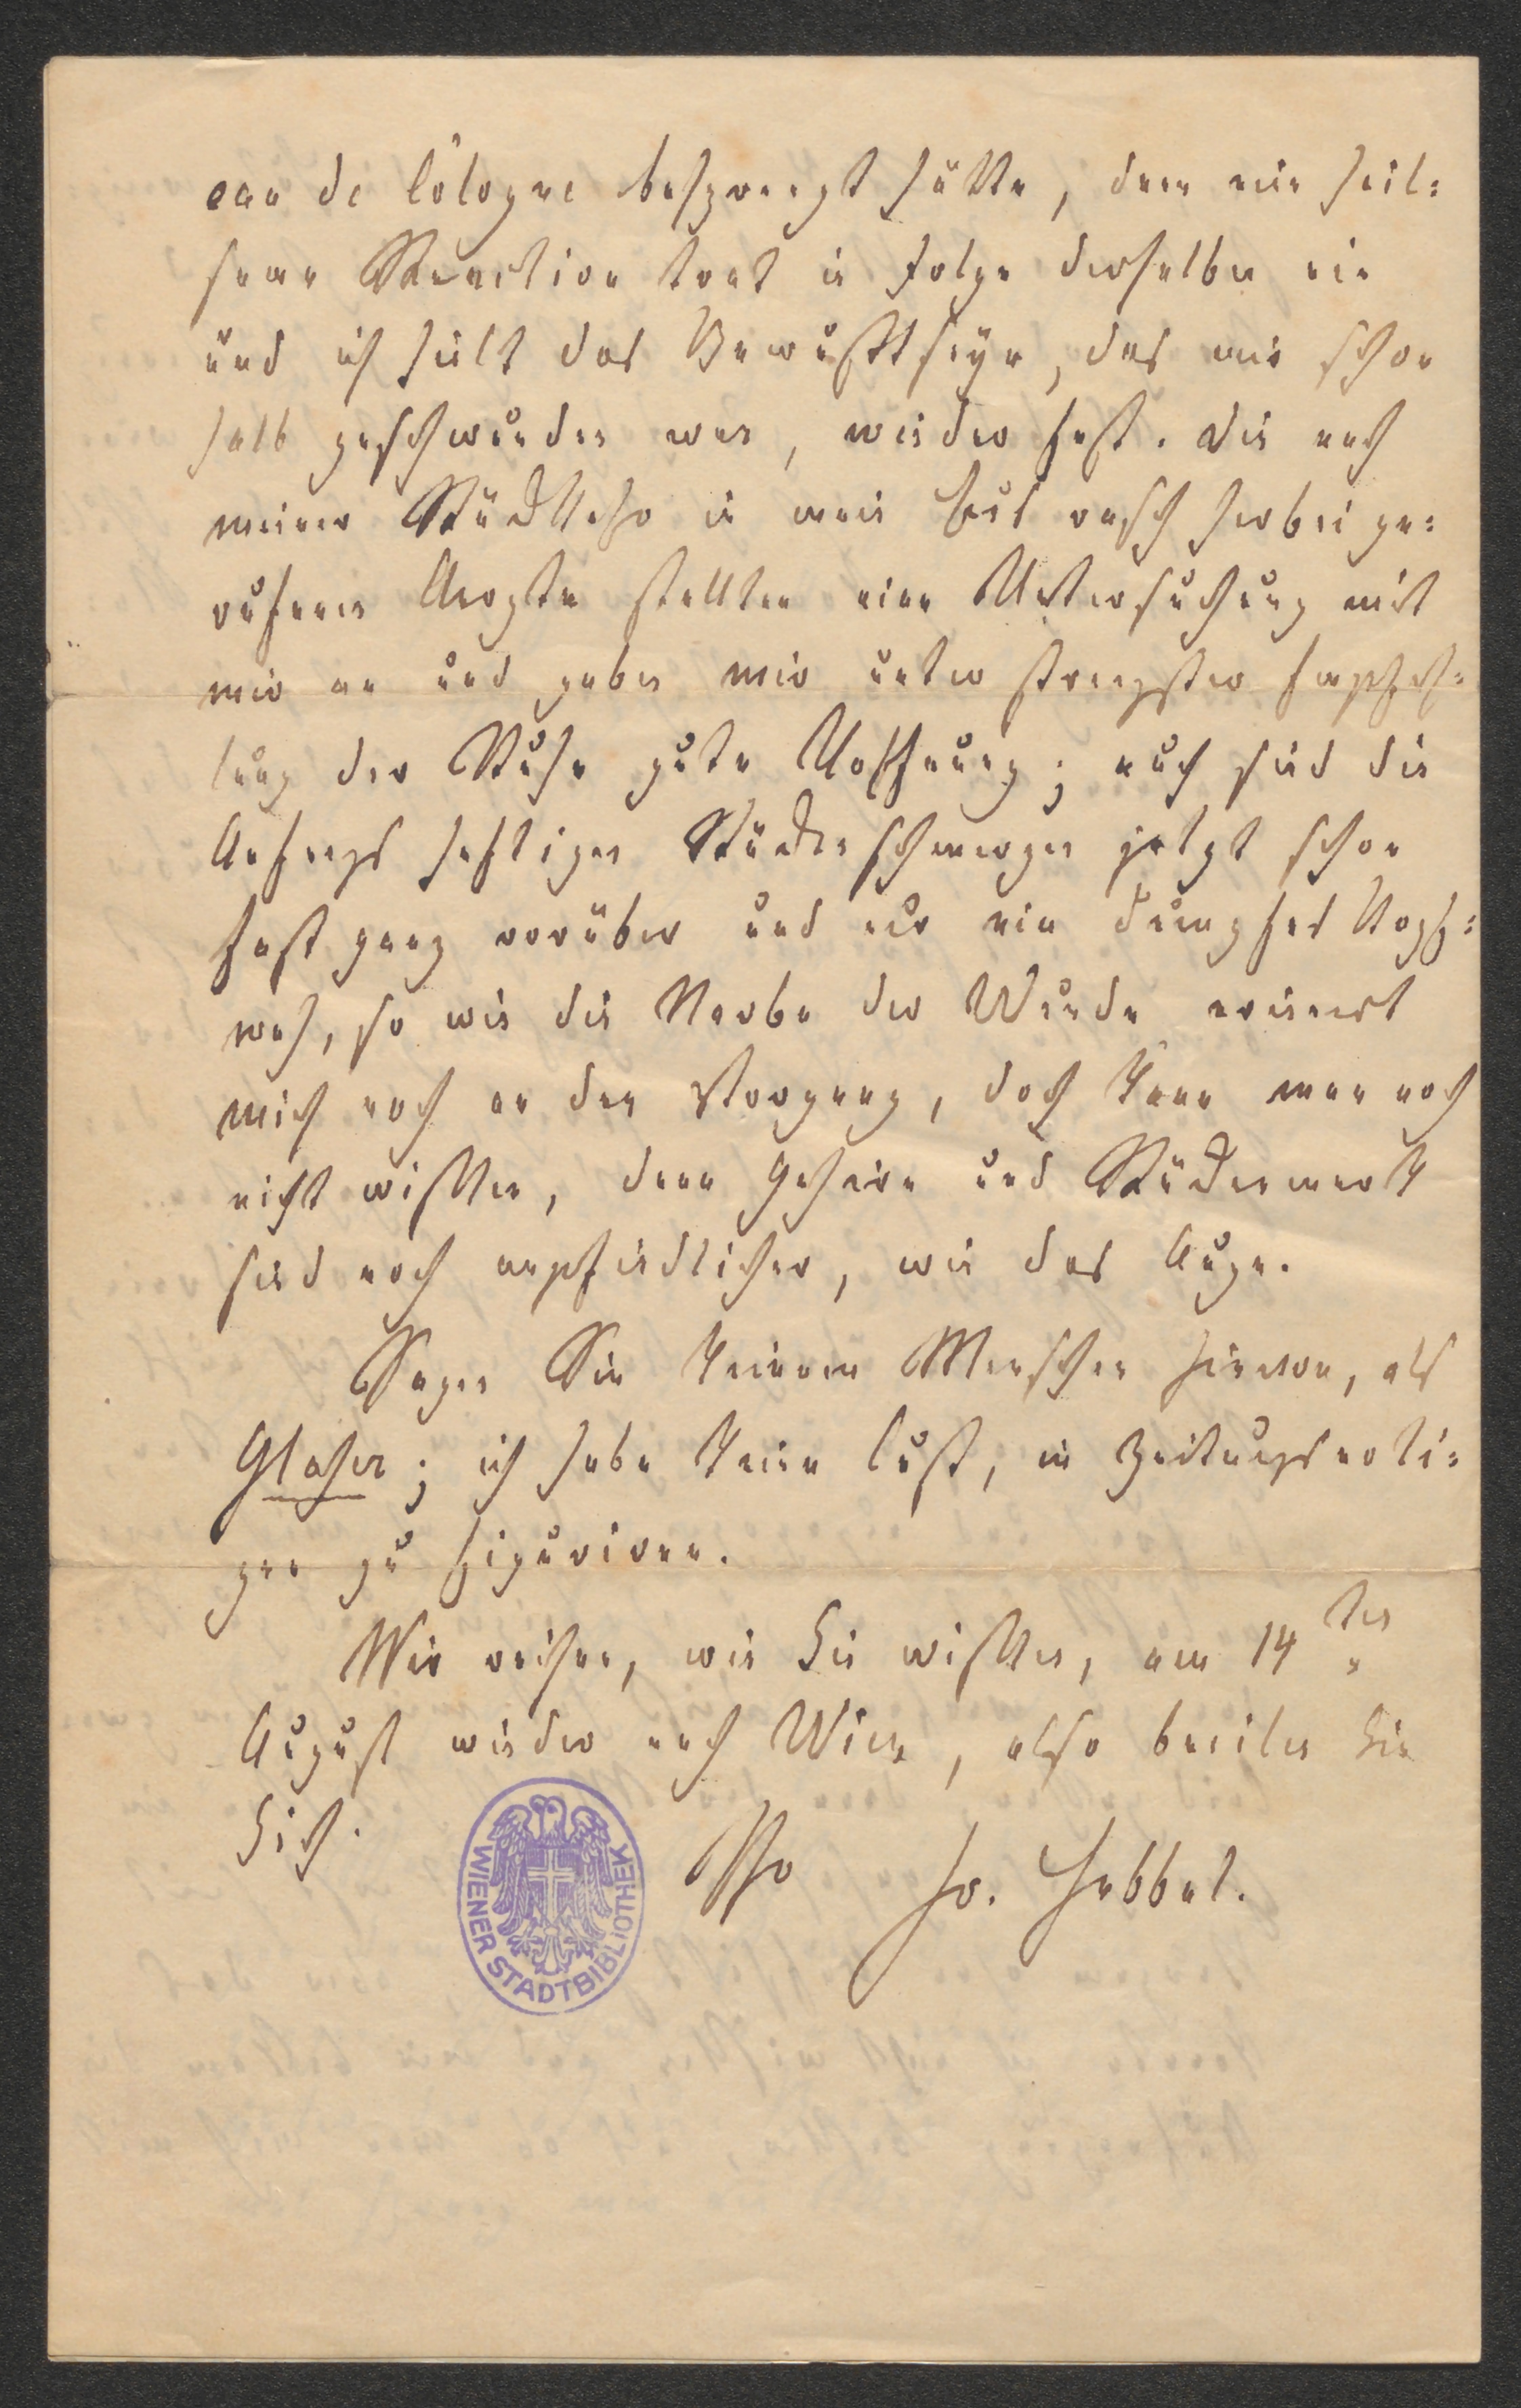 eau de Cologne besprengt hätte, denn eine heil=
same Reaction trat in Folge derselben ein
und ich hielt das Bewußtseyn, das mir schon
halb geschwunden war, wieder fest. Die nach
meiner Rückkehr in mein Haus rasch herbei ge=
rufenen Aerzte stellten eine Untersuchung mit
mir an und gaben mir unter strengster Empfeh=
lung der Ruhe gute Hoffnung; auch sind die
Anfangs heftigen Rückenschmerzen jetzt schon
fast ganz vorüber und nur ein dumpfes Kopf=
weh, so wie die Narbe der Wunde erinnert
mich noch an den Vorgang, doch kann man noch
nicht wissen, denn Gehirn und Rückenmark
sind noch empfindlicher, wie das Auge.
Sagen Sie keinem Menschen hiervon, als
Glaser; ich habe keine Lust, in Zeitungsnoti=
zen zu figuriren.
Wir reisen, wie Sie wissen, am 14ten
August wieder nach Wien, also beeilen Sie
Sich.
Ihr Fr. Hebbel.
WIENER STADTBIBLIOTHEK